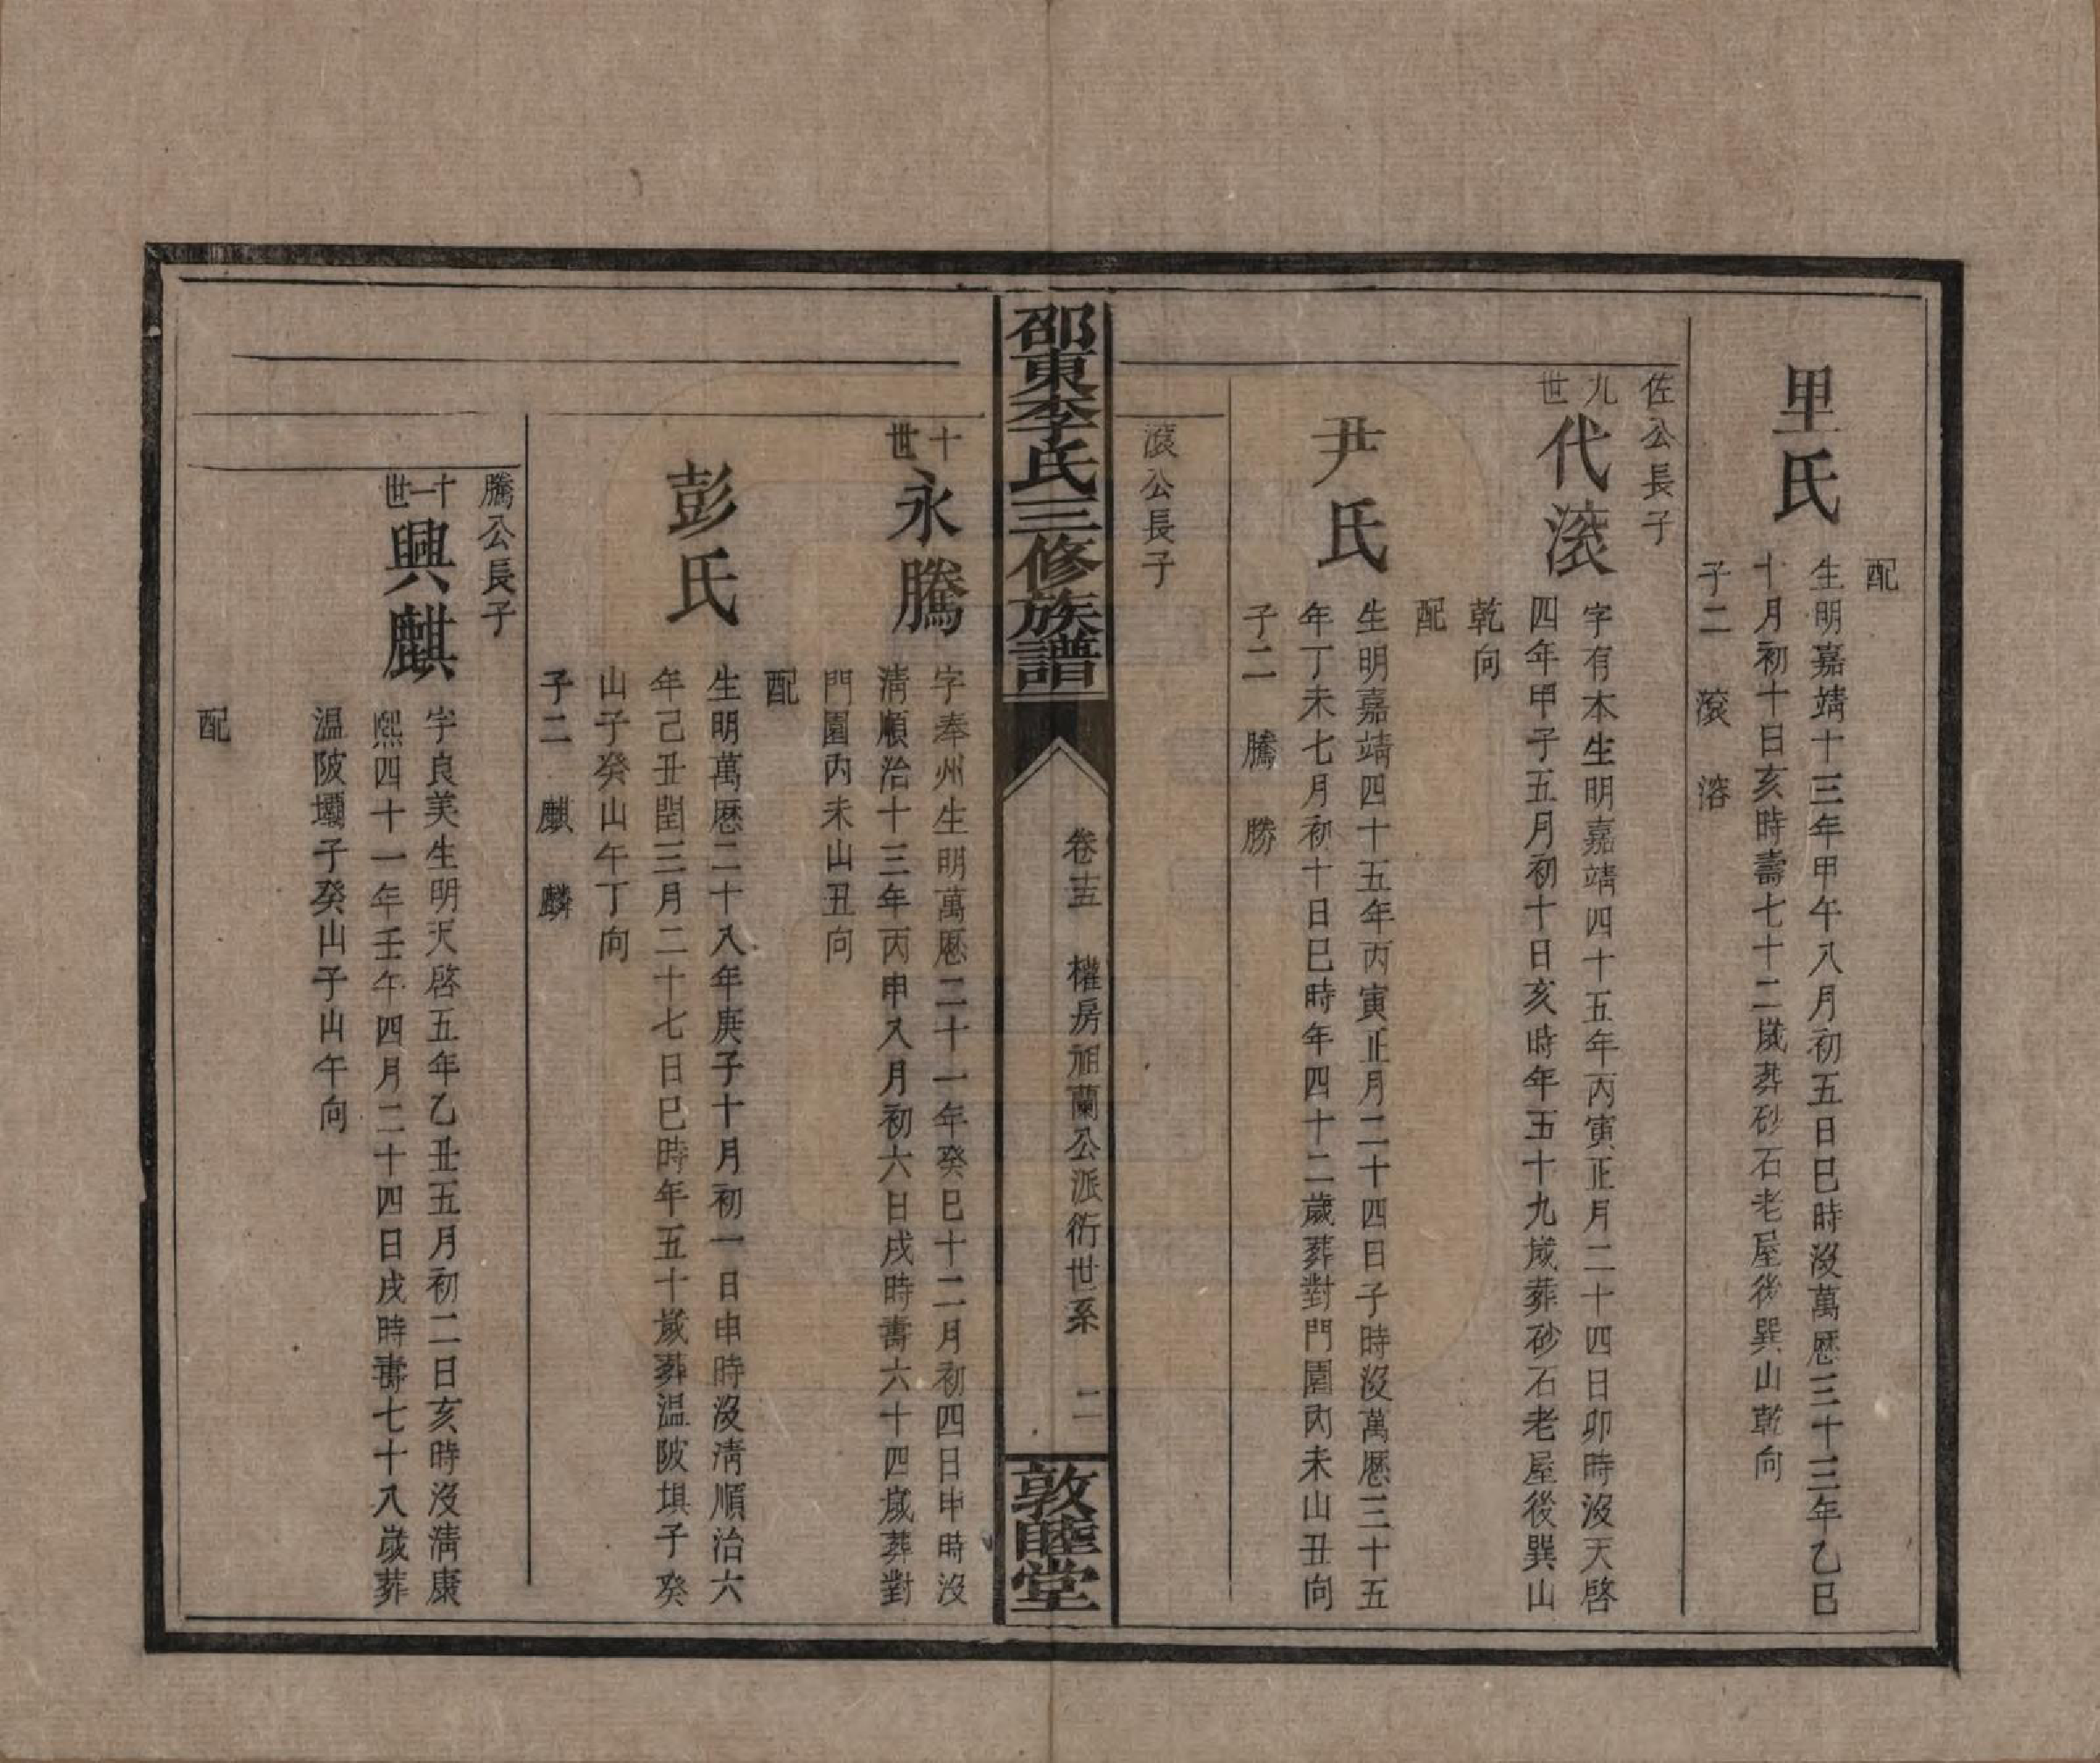 配
里氏
生明嘉靖十三年甲午八月初五日巳時沒萬厯三十三年乙巳
十月初十日亥時壽七十二歲葬砂石老屋後巽山乾向
子二　滾　溶
佐公長子
九世
代滾
字有本生明嘉靖四十五年丙寅正月二十四日卯時沒天啓
四年甲子五月初十日亥時年五十九歲葬砂石老屋後巽山
乾向
配
尹氏
生明嘉靖四十五年丙寅正月二十四日子時沒萬厯三十五
年丁未七月初十日巳時年四十二歲葬對門園內未山丑向
子二　騰　勝
滾公長子
邵東李氏三修族譜
卷十五　權房祖蘭公派衍世系　二
敦睦堂
十世
永騰
字奉州生明萬厯二十一年癸巳十二月初四日申時沒
淸順治十三年丙申八月初六日戌時壽六十四歲葬對
門園內未山丑向
配
彭氏
生明萬厯二十八年庚子十月初一日申時沒淸順治六
年己丑閏三月二十七日巳時年五十歲葬溫陂垻子癸
山子癸山午丁向
子二　麒　麟
騰公長子
十一世
興麒
字良美生明天啓五年乙丑五月初二日亥時沒淸康
熙四十一年壬午四月二十四日戌時壽七十八歲葬
溫陂壩子癸山子山午向
配